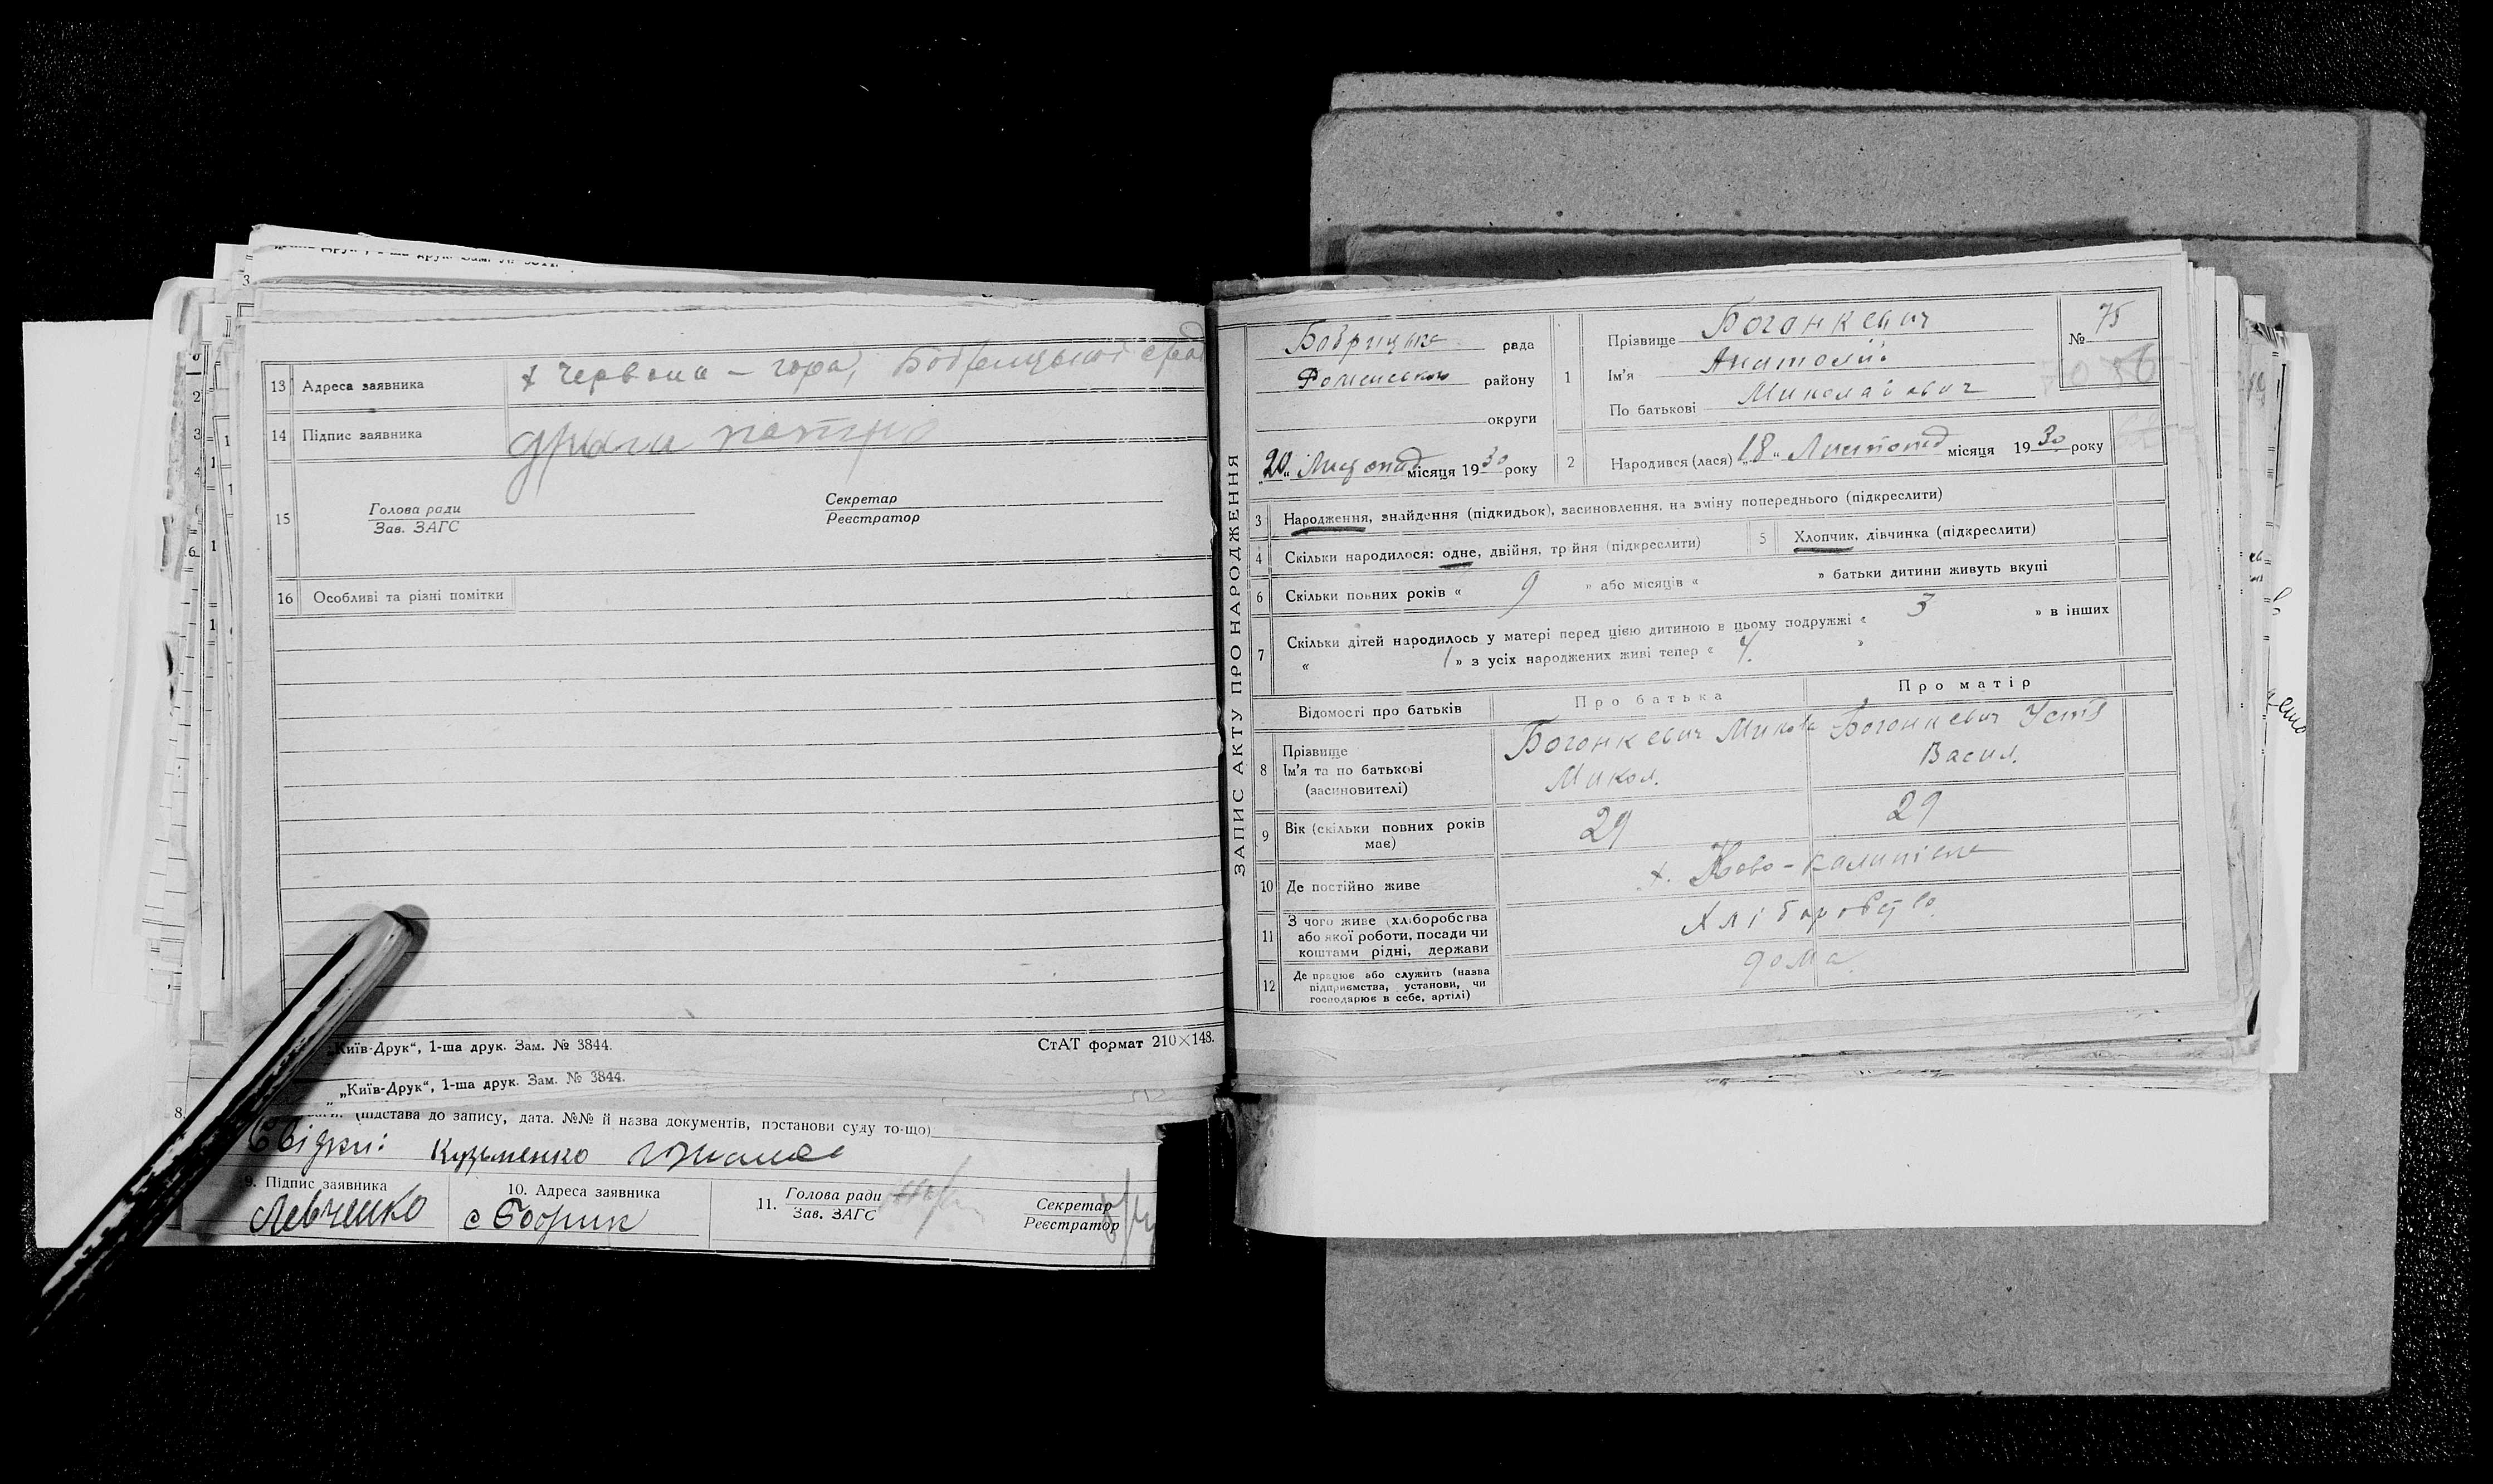 13 Адреса заявника х Червона – гора, Бобрицької
14 Підпис заявника
15 Голова ради Секретар
Зав. ЗАГС Реєстратор
16 Особливі та різні помітки
„Київ-Друк“, 1-ша друк. Зам. № 3844. СтАТ формат 210×148.
„Київ-Друк“, 1-ша друк. Зам. № 3844.
(підстава до запису, дата. №№ й назва документів, постанови суду то-що)
Свідки: Кузьменко
9. Підпис заявника 10. Адреса заявника 11. Голова ради Секретар
Левченко с Бобрик Зав. ЗАГС Реєстратор
ЗАПИС АКТУ ПРО НАРОДЖЕННЯ
Бобрицька рада
Роменського району
округи
„20“ Листопад місяця 1930 року
1 Прізвище Боганкевич
Ім'я Анатолій
По батькові Миколайович
№ 75
2 Народився (лася) „18“ Листопад місяця 1930 року
3 Народження, знайдення (підкидьок), засиновлення, на зміну попереднього (підкреслити)
4 Скільки народилося: одне, двійня, трійня (підкреслити) 5 Хлопчик, дівчинка (підкреслити)
6 Скільки повних років « 9 » або місяців « » батьки дитини живуть вкупі
7 Скільки дітей народилось у матері перед цією дитиною в цьому подружжі « 3 » в інших
« 1 » з усіх народжених живі тепер « 4 »
Відомості про батьків Про батька Про матір
8 Прізвище
Ім'я та по батькові
(засиновителі)
Боганкевич Микола
Микол.
Боганкевич Устя
Васил.
9 Вік (скільки повних років має) 29 29
10 Де постійно живе х. Ново-Калинівка
11 З чого живе (хліборобства
або якої роботи, посади чи
коштами рідні, держави
Хліборобство
12 Де працює або служить (назва
підприємства, установи, чи
господарює в себе, артілі)
дома